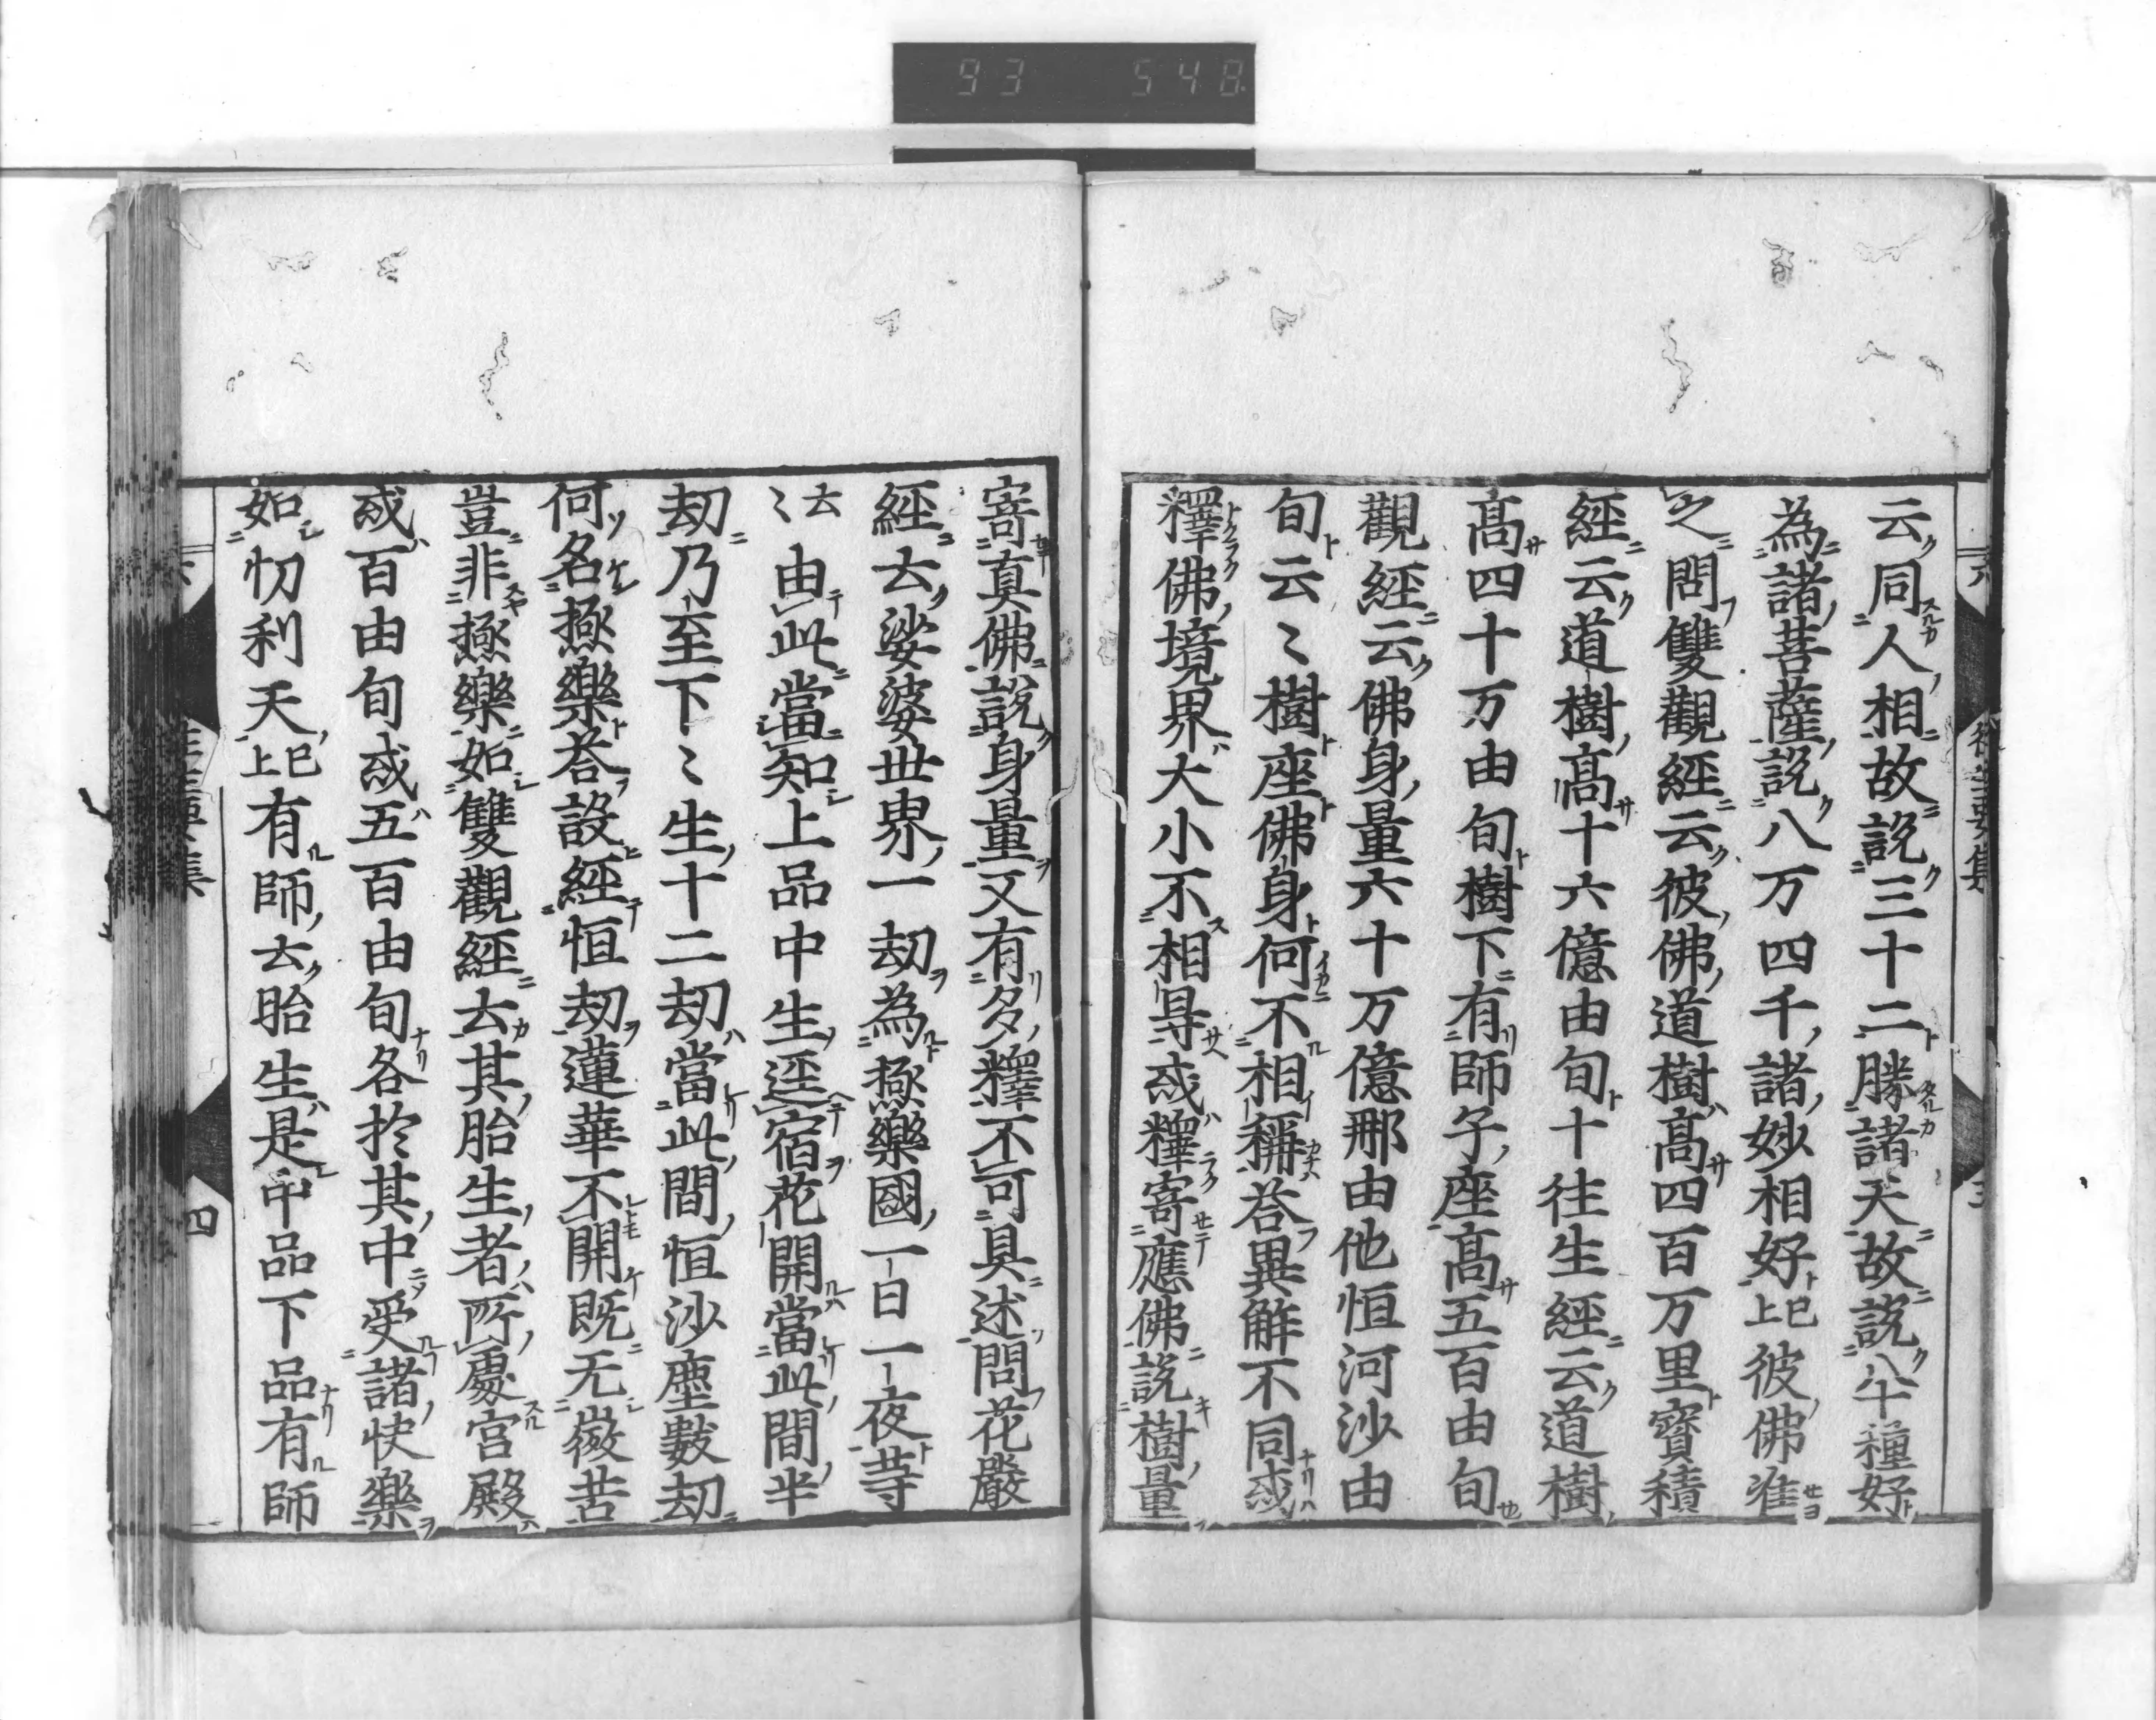 云同人相故説三十二勝諸天故説八十種好
為諸菩薩説八万四千諸妙相好已上彼佛准
之問雙觀經云彼佛道樹高四百万里寳積
經云道樹高十六億由旬十往生經云道樹
高四十万由旬樹下有師子座高五百由旬
觀經云佛身量六十万億那由他恒河沙由
旬云〻樹座佛身何不相稱荅異解不同或
釋佛境界大小不相㝵或釋寄應佛説樹量
寄真佛説身量又有多釋不可具述問花嚴
經云娑婆世界一劫為極樂國一日一夜等
云〻由此當知上品中生逕宿花開當此間半
劫乃至下〻生十二劫當此間恒沙塵數劫
何名極樂荅設經恒劫蓮華不開既无微苦
豈非極樂如雙觀經云其胎生者所處宫殿
或百由旬或五百由旬各於其中受諸快樂
如忉利天已上有師云胎生是中品下品有師
四